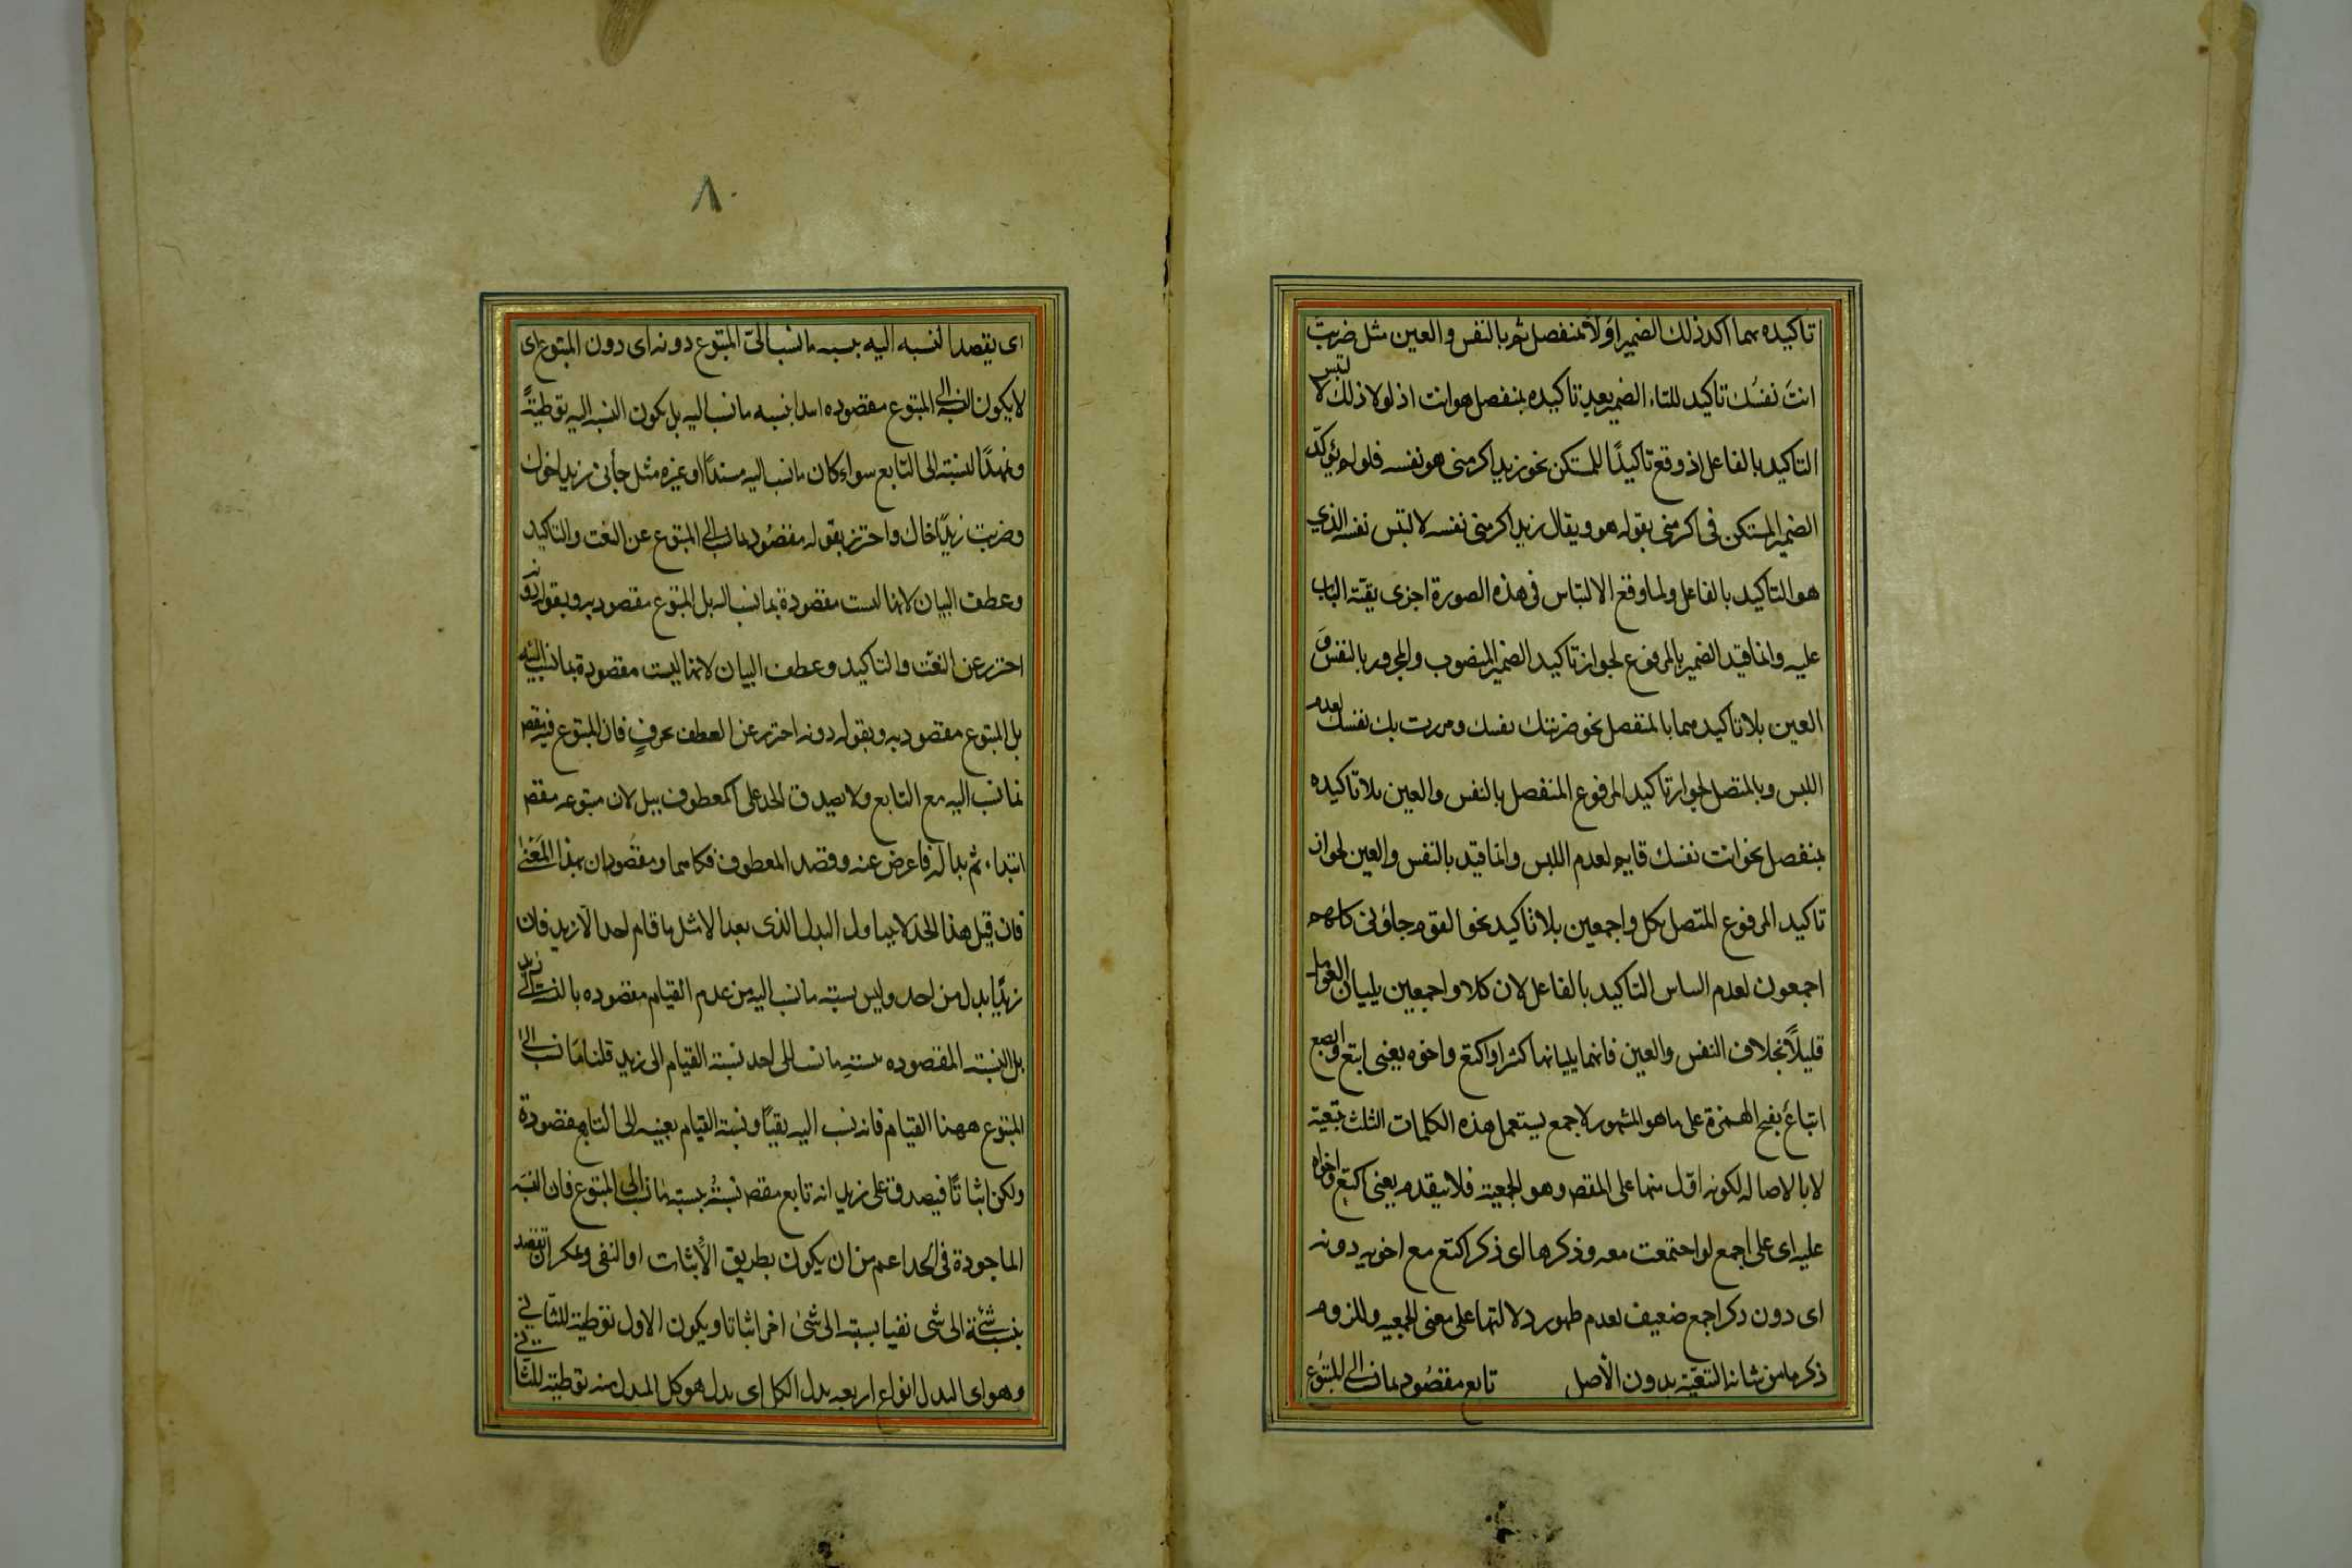 تاكيده بهما اكد ذلك الضمير اولا بمنفصل ثم بالنفس والعين مثل ضربت
انت نفسك تاكيد للتاء الضمير بعد تاكيده بمنفصل هو انت اذ لولا ذلك لا لتبس
التاكيد بالفاعل اذ وقع تاكيدًا للمستكن نحو زيد اكرمنى هو نفسه فلو لم يؤكد
الضمير المستكن فى اكرمنى بقوله هو ويقال زيد اكرمنى نفسه لالتبس نفسه الذي
هو التاكيد بالفاعل ولما وقع الالتباس فى هذه الصورة اجرى بقية الباب
عليه وانما قيد الضمير بالمرفوع لجواز تاكيد الضمير المنصوب والمجرور بالنفس و
العين بلا تاكيدهما بالمنفصل نحو ضربتك نفسك ومررت بك نفسك لعدم
اللبس وبالمتصل لجواز تاكيد المرفوع المنفصل بالنفس والعين بلا تاكيده
بمنفصل نحو انت نفسك قايم لعدم اللبس وانما قيد بالنفس والعين لجواز
تاكيد المرفوع المتصل بكل واجمعين بلا تاكيد نحو القوم جاؤنى كلهم
اجمعون لعدم الساس التاكيد بالفاعل لان كلا واجمعين يليان العوامل
قليلاً بخلاف النفس والعين فانهما يليانها كثيرا واكتع واخوه يعنى ابتع وابصع
اتباع بفتح الهمزة على ما هو المشهور لاجمع يستعمل هذه الكلمات الثلث بتبعية
لا بالاصاله لكونه ادل منها على المقص وهو الجمعية فلا يتقدم يعنى اكتع واخواه
عليه اى على اجمع لو اجتمعت معه وذكرها اى ذكر اكتع مع اخويه دونه
اى دون ذكر اجمع ضعيف لعدم ظهور دلالتها على معنى الجمعيه وللزوم
ذكر ما من شانه التبعية بدون الأصل تابع مقصود بما نسب الى المتبوع
٨٠
اى يقصد النسبه اليه بنسبه ما نسب الى المتبوع دونه اى دون المتبوع اى
لا يكون النسبه الى المتبوع مقصوده ابتدا بنسبه ما نسب اليه بل يكون النسبه اليه توطئةً
وتمهيدًا لنسبته الى التابع سواء كان ما نسب اليه مسندًا او غيره مثل جأنى زيد اخوك
وضربت زيدًا اخاك واحترز بقوله مقصود بما نسب الى المتبوع عن النعت والتاكيد
وعطف البيان لانها ليست مقصودة بما نسب اليه بل المتبوع مقصود به وبقوله دونه
احترز عن النعت والتاكيد وعطف البيان لانها ليست مقصودة بما نسب اليه
بل المتبوع مقصود به وبقوله دونه احترز عن العطف بحرفٍ فان المتبوع فيه مقص
بما نسب اليه مع التابع ولا يصدق الحد على المعطوف ببل لان متبوعه مقص
ابتداء ثم بدا له فاعرض عنه وقصد المعطوف فكلاهما ومقصودان بهذا المعنى
فان قيل هذا الحد لا يتناول البدل الذى بعد الا مثل ما قام احد الا زيد فان
زيدًا بدل من احد وليس نسبته ما نسب اليه من عدم القيام مقصوده بالنسبة الى زيد
بل النسبته المقصوده بنسبته ما نسب الى احد نسبة القيام الى زيد قلنا ما نسب الى
المتبوع ههنا القيام فانه نسب اليه نفيًا ونسبة القيام بعينه الى التابع مقصودة
ولكن اثباتًا فيصدق على زيد انه تابع مقص نسبته بنسبته ما نسب الى المتبوع فان النسبة
الماخوذة فى الحد اعم من ان يكون بطريق الأثبات او النفى ويمكن ان يقصد
بنسبة شئ الى شى نفيا بنسبته الى شئ اخر اثباتا ويكون الاول توطية للثانى
وهو اى البدل انواع اربعه بدل الكل اى بدل هو كل المبدل منه توطية للثانى